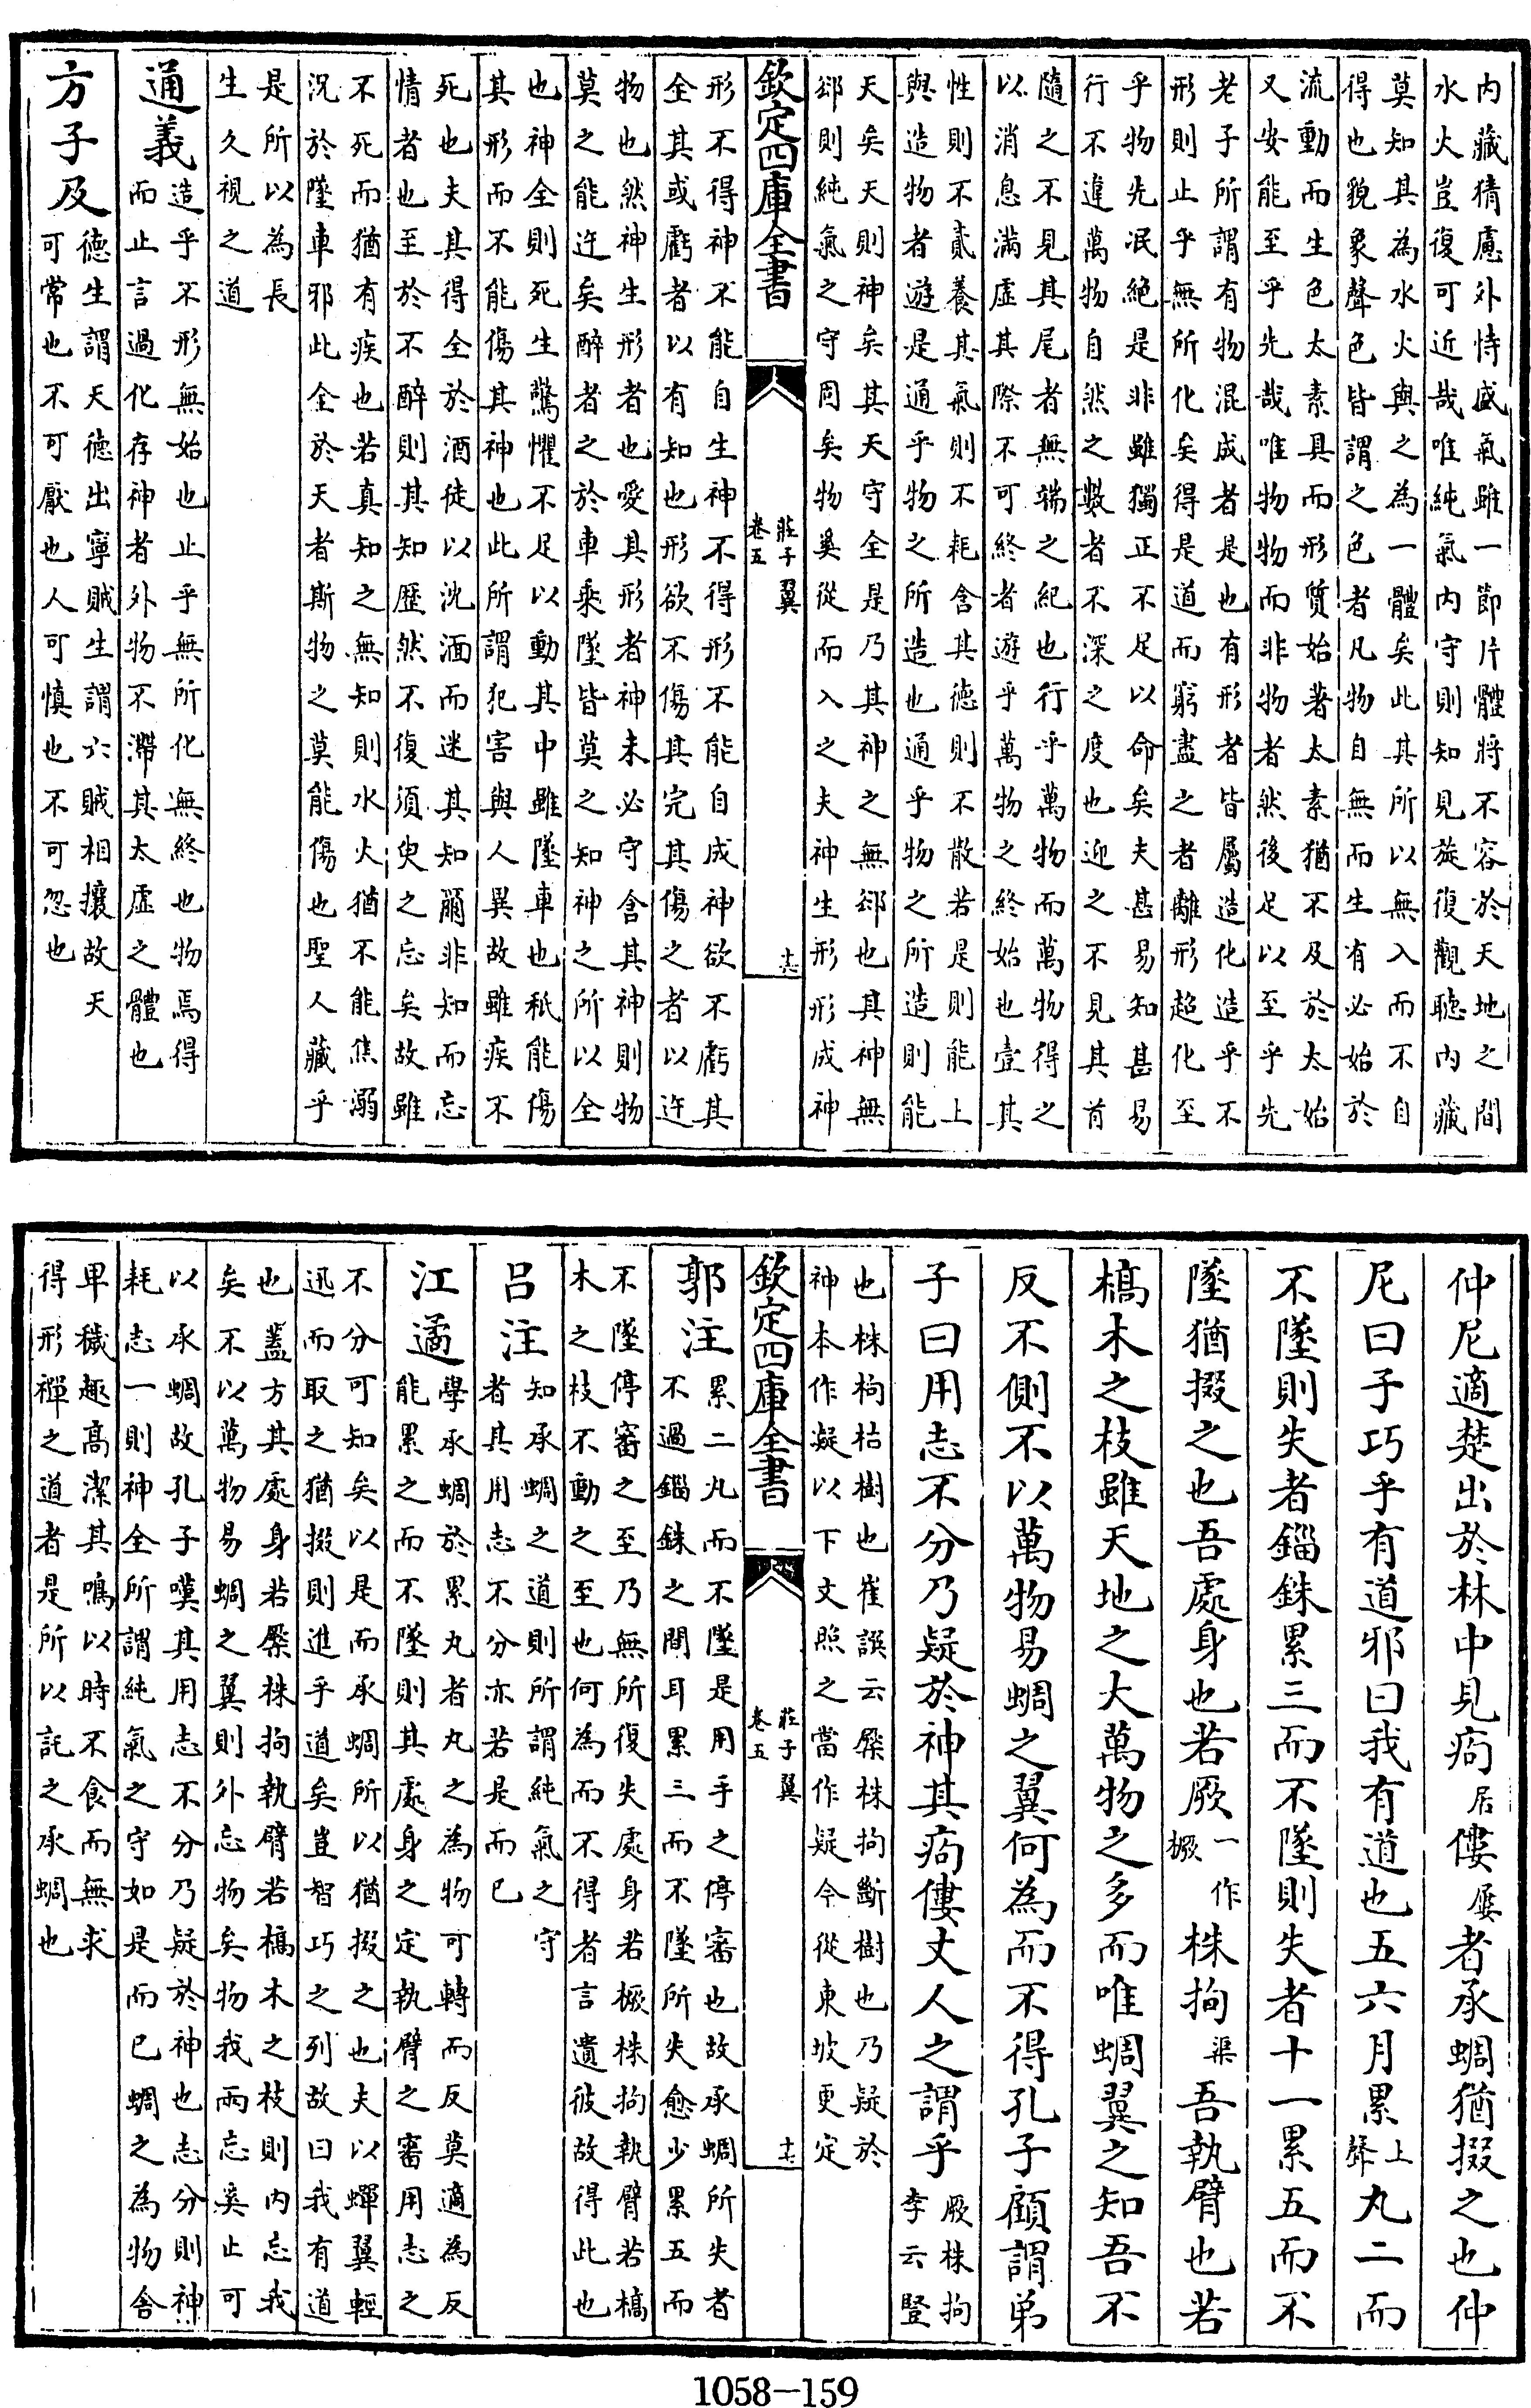 内藏猜慮外恃盛氣雖一節片體將不容於天地之間
水火豈復可近哉唯純氣内守則知見旋復觀聽内藏
莫知其為水火與之為一體矣此其所以無入而不自
得也貌象聲色皆謂之色者凡物自無而生有必始於
流動而生色太素具而形質始著太素猶不及於太始
又安能至乎先哉唯物物而非物者然後足以至乎先
老子所謂有物混成者是也有形者皆屬造化造乎不
形則止乎無所化矣得是道而窮盡之者離形超化至
乎物先泯絶是非雖獨正不足以命矣夫甚易知甚易
行不違萬物自然之數者不深之度也迎之不見其首
隨之不見其尾者無端之紀也行乎萬物而萬物得之
以消息滿虛其際不可終者遊乎萬物之終始也壹其
性則不貳養其氣則不耗含其德則不散若是則能上
與造物者遊是通乎物之所造也通乎物之所造則能
天矣天則神矣其天守全是乃其神之無郤也其神無
郤則純氣之守固矣物奚從而入之夫神生形形成神
欽定四庫全書
莊子翼
卷五
十六
形不得神不能自生神不得形不能自成神欲不虧其
全其或虧者以有知也形欲不傷其完其傷之者以迕
物也然神生形者也愛其形者神未必守含其神則物
莫之能迕矣醉者之於車乘墜皆莫之知神之所以全
也神全則死生驚懼不足以動其中雖墜車也秖能傷
其形而不能傷其神也此所謂犯害與人異故雖疾不
死也夫其得全於酒徒以沈湎而迷其知爾非知而忘
情者也至於不醉則其知歴然不復須臾之忘矣故雖
不死而猶有疾也若真知之無知則水火猶不能焦溺
況於墜車邪此全於天者斯物之莫能傷也聖人藏乎
是所以為長
生久視之道
通義造乎不形無始也止乎無所化無終也物焉得
而止言過化存神者外物不滯其太虛之體也
方子及德生謂天德出寧賊生謂六賊相攘故天
可常也不可厭也人可慎也不可忽也
仲尼適楚出於林中見痀居僂屢者承蜩猶掇之也仲
尼曰子巧乎有道邪曰我有道也五六月累上聲丸二而
不墜則失者錙銖累三而不墜則失者十一累五而不
墜猶掇之也吾處身也若厥一作橛株拘渠吾執臂也若
槁木之枝雖天地之大萬物之多而唯蜩翼之知吾不
反不側不以萬物易蜩之翼何為而不得孔子顧謂弟
子曰用志不分乃疑於神其痀僂丈人之謂乎厥株拘
李云豎
也株拘枯樹也崔譔云橜株拘斷樹也乃疑於
神本作凝以下文照之當作疑今從東坡更定
欽定四庫全書
莊子翼
卷五
十七
郭注累二丸而不墜是用手之停審也故承蜩所失者
不過錙銖之間耳累三而不墜所失愈少累五而
不墜停審之至乃無所復失處身若橛株拘執臂若槁
木之枝不動之至也何為而不得者言遺彼故得此也
吕注知承蜩之道則所謂純氣之守
者其用志不分亦若是而已
江遹學承蜩於累丸者丸之為物可轉而反莫適為反
能累之而不墜則其處身之定執臂之審用志之
不分可知矣以是而承蜩所以猶掇之也夫以蟬翼輕
迅而取之猶掇則進乎道矣豈智巧之列故曰我有道
也蓋方其處身若橜株拘執臂若槁木之枝則内忘我
矣不以萬物易蜩之翼則外忘物矣物我兩忘奚止可
以承蜩故孔子嘆其用志不分乃疑於神也志分則神
耗志一則神全所謂純氣之守如是而已蜩之為物舍
卑穢趣高潔其鳴以時不食而無求
得形禪之道者是所以託之承蜩也
1058-159